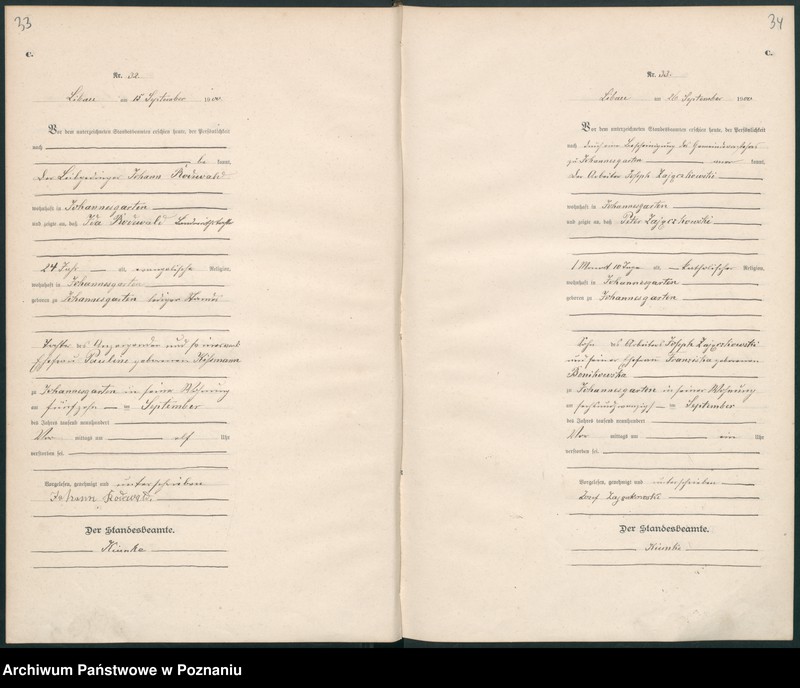 33
C.
Nr. 32.
Libau am 15 September 1900
Vor dem unterzeichneten Standesbeamten erschien heute, der Persönlichkeit
nach
be kannt,
der Leibgedinger Johann Rosuwald
wohnhaft in Johannesgarten
und zeigte an, daß Ida
24 Jahr alt, evangelische Religion,
wohnhaft in Johannesgarten
geboren zu Johannesgarten lediger Stand
Tochter des Anzeigenden und
Ehefrau Pauline geborenen
zu Johannesgarten in seine Wohnung
am fünfzehn ten September
des Jahres tausend neunhundert
Vor mittags um elf Uhr
verstorben sei.
Vorgelesen, genehmigt und unterschrieben
Johann
Der Standesbeamte.
34
C.
Nr. 33.
Libau am 26 September 1900
Vor dem unterzeichneten Standesbeamten erschien heute, der Persönlichkeit
nach durch eine Bescheinigung des Gemeindevorstehers
zu Johannesgarten aner kannt,
der Arbeiter Joseph Zajączkowski
wohnhaft in Johannesgarten
und zeigte an, daß Peter Zajączkowski
1 Monat 10 Tage alt, katholischer Religion,
wohnhaft in Johannesgarten
geboren zu Johannesgarten
Sohn des Arbeiters Joseph Zajączkowski
und seiner Ehefrau Franziska geborenen
Bonikowska
zu Johannesgarten in seiner Wohnung
am sechsundzwanzigsten September
des Jahres tausend neunhundert
Vor mittags um ein Uhr
verstorben sei.
Vorgelesen, genehmigt und unterschrieben
Der Standesbeamte.
Archiwum Państwowe w Poznaniu